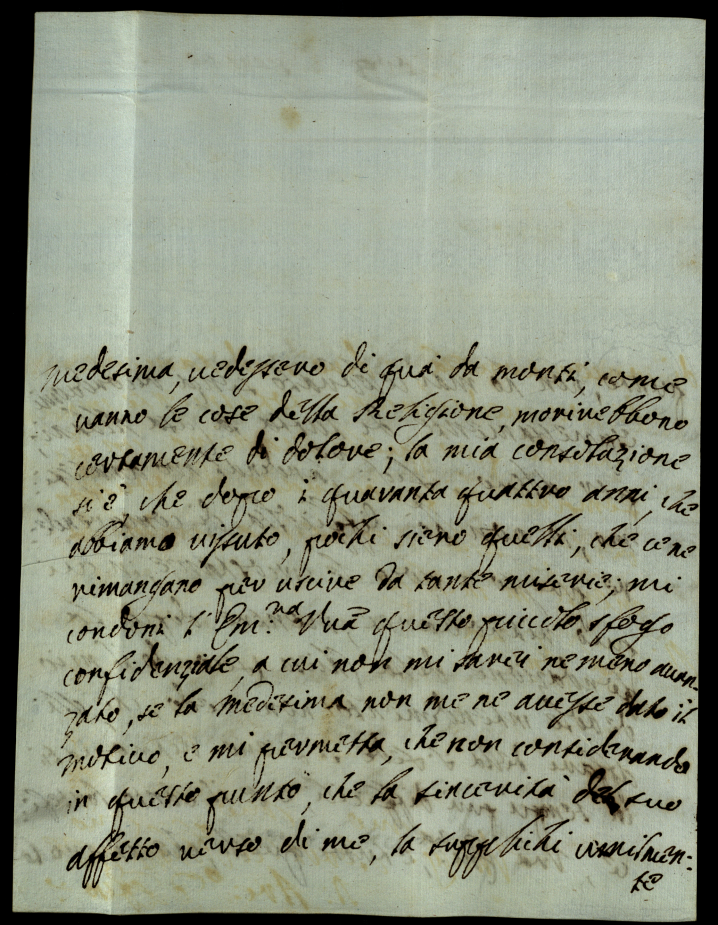 medesima, uedessero di quà da monti, come
uanno le cose della Religione, morirebbono
certamente di dolore; la mia consolazione
si è, che dopo i quaranta quattro anni, che
abbiamo uissuto, pochi sieno quelli, che ce ne
rimangano per uscire da tante miserie; mi
condoni l'Em.ma Vrã questo piccolo sfogo
confidenziale, a cui non mi sarei nemeno auan-
zato, se la medesima non me ne auesse dato il
motiuo, e mi permetta, che non considerando
in questo punto, che la sincerità del suo
affetto uerso di me, la supplichi umilmen:
te